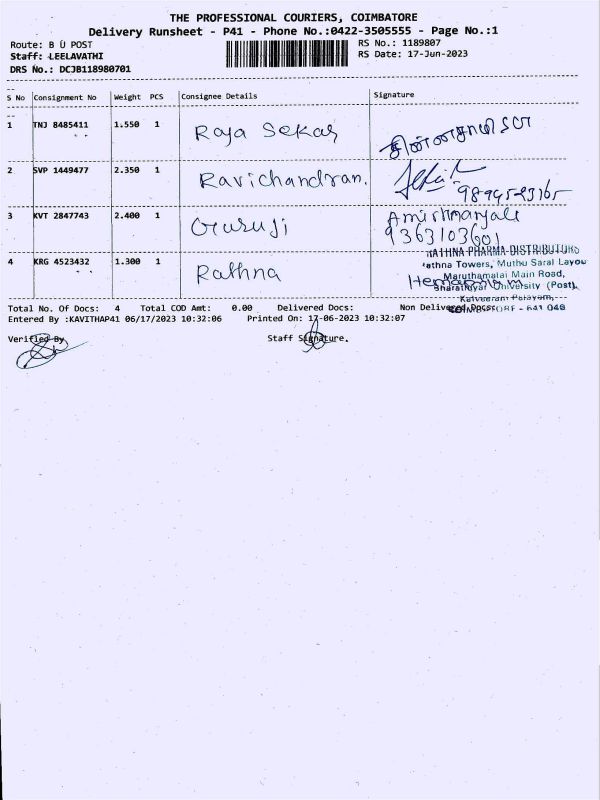 THE PROFESSIONAL COURIERS, COIMBATORE
Delivery Runsheet - P41 - Phone No.:0422-3505555 - Page No.:1
Route: B U POST
RS No.: 1189807
Staff: LEELAVATHI
RS Date: 17-Jun-2023
DRS No.: DCJB118980701
S No Consignment No Weight PCS Consignee Details Signature
1 TNJ 8485411 1.550 1 Raja Sekar
2 SVP 1449477 2.350 1 Ravichandran.
3 KVT 2847743 2.400 1 Guruji Amirthanjali
9363103601
4 KRG 4523432 1.300 1 Rathna
RATHNA PHARMA DISTRIBUTORS
Rathna Towers, Muthu Saral Layou
Maruthamalai Main Road,
Bharathiyar University (Post),
Kalveeram Palayam,
COIMBATORE - 641 046
Total No. Of Docs: 4 Total COD Amt: 0.00 Delivered Docs: Non Delivered Docs:
Entered By :KAVITHAP41 06/17/2023 10:32:06 Printed On: 17-06-2023 10:32:07
Verified By Staff Signature.